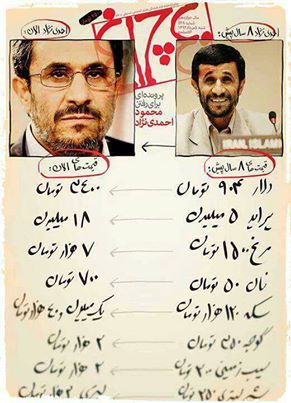 احمدی نژاد ۸ سال پیش:
احمدی نژاد الان:
چلچراغ
پرونده‌ای
برای رفتن
محمود
احمدی‌نژاد
IRAN, ISLAMI
قیمت های ۸ سال پیش:
قیمت های الان:
دلار ۹۰۴ تومان ← ۳۴۰۰ تومان
پراید ۵ میلیون ← ۱۸ میلیون
مرغ ۱۵۰۰ تومان ← ۷ هزار تومان
نان ۵۰ تومان ← ۷۰۰ تومان
سکه ۱۲۰ هزار تومان ← یک میلیون و ۴۰ هزار تومان
گوجه ۳۵۰ تومان ← ۲ هزار تومان
سیب زمینی ۲۰۰ تومان ← ۲ هزار تومان
شیر لیتری ۲۵۰ تومان ← لیتری ۳ هزار تومان